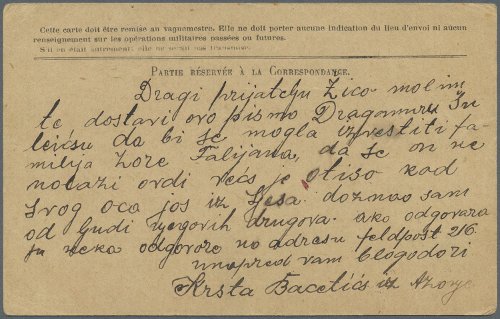 Cette carte doit être remise au vaguemestre. Elle ne doit porter aucune indication du lieu d'envoi ni aucun
renseignement sur les opérations militaires passées ou futures.
S'il en était autrement, elle ne serait pas transmise.
PARTIE RÉSERVÉE À LA CORRESPONDANCE.
Dragi prijatelju Žico molim
te dostavi ovo pismo Dragomiru
da bi se mogla izvestiti fa
milija Zore Talijana, da se on ne
nalazi ovdi već je otiso kod
svog oca jos iz doznao sam
od ljudi njegovih drugova ako odgovara
ju neka odgovore na adresu feldpost 216
unapred vam blogodori
Krsta Bacetićs iz